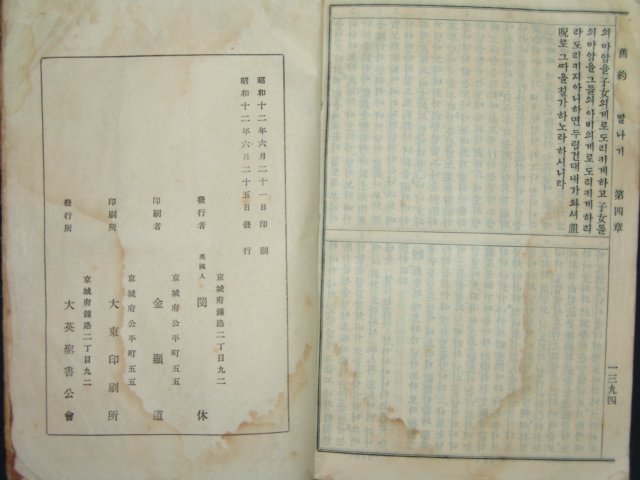 舊約 말나기 第四章
一三九四
의마암을子女의게로도리키게하고子女들
의마암을그들의아비의게로도리키게하리
라도리키지아니하면두렵건대내가와셔詛
呪로그싸을칠가하노라하시니라
昭和十二年六月二十一日印刷
昭和十二年六月二十五日發行
京城府鍾路二丁目九二
發行者 英國人 閔休
京城府公平町五五
印刷者 金顯道
京城府公平町五五
印刷所 大東印刷所
京城府鍾路二丁目九二
發行所 大英聖書公會